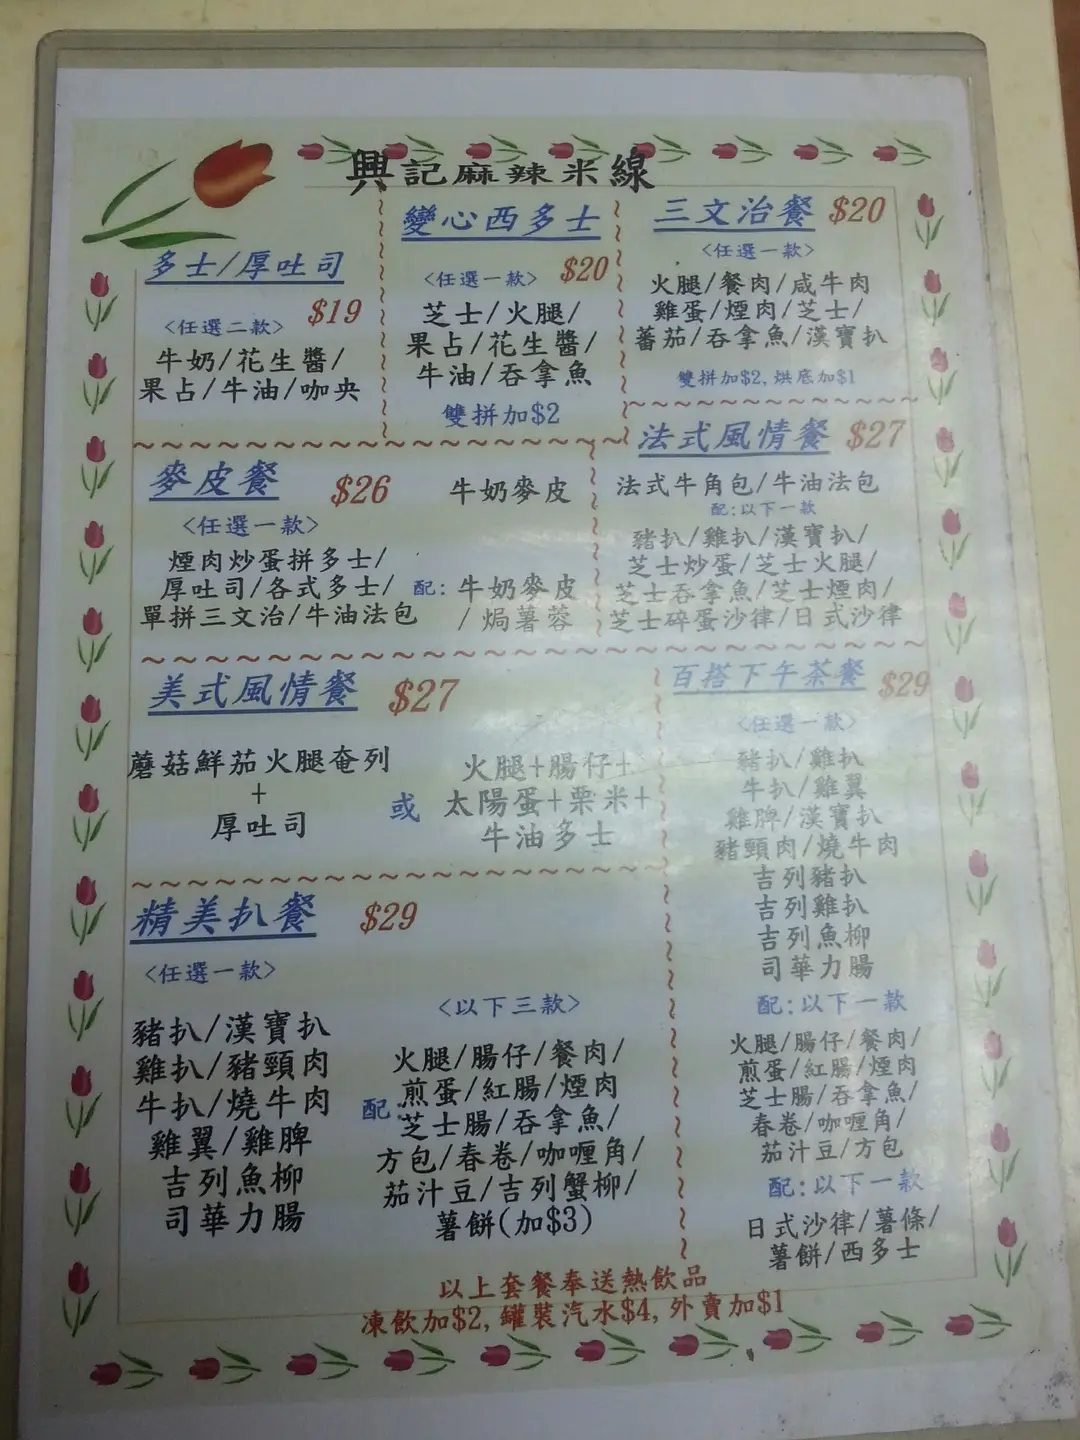 興記麻辣米線
多士/厚吐司
$19
<任選二款>
牛奶/花生醬/
果占/牛油/咖央
變心西多士
<任選一款> $20
芝士/火腿/
果占/花生醬/
牛油/吞拿魚
雙拼加$2
三文治餐 $20
<任選一款>
火腿/餐肉/咸牛肉
雞蛋/煙肉/芝士/
蕃茄/吞拿魚/漢寶扒
雙拼加$2,烘底加$1
麥皮餐 $26
<任選一款>
煙肉炒蛋拼多士/
厚吐司/各式多士/
單拼三文治/牛油法包
牛奶麥皮
配: 牛奶麥皮
/焗薯蓉
法式風情餐 $27
法式牛角包/牛油法包
配:以下一款
豬扒/雞扒/漢寶扒/
芝士炒蛋/芝士火腿/
芝士吞拿魚/芝士煙肉/
芝士碎蛋沙律/日式沙律
美式風情餐 $27
蘑菇鮮茄火腿奄列
+
厚吐司
或
火腿+腸仔+
太陽蛋+粟米+
牛油多士
百搭下午茶餐 $29
<任選一款>
豬扒/雞扒
牛扒/雞翼
雞脾/漢寶扒
豬頸肉/燒牛肉
吉列豬扒
吉列雞扒
吉列魚柳
司華力腸
配:以下一款
火腿/腸仔/餐肉/
煎蛋/紅腸/煙肉
芝士腸/吞拿魚/
春卷/咖喱角/
茄汁豆/方包
配:以下一款
日式沙律/薯條/
薯餅/西多士
精美扒餐 $29
<任選一款>
豬扒/漢寶扒
雞扒/豬頸肉
牛扒/燒牛肉
雞翼/雞脾
吉列魚柳
司華力腸
<以下三款>
配:
火腿/腸仔/餐肉/
煎蛋/紅腸/煙肉
芝士腸/吞拿魚/
方包/春卷/咖喱角/
茄汁豆/吉列蟹柳/
薯餅(加$3)
以上套餐奉送熱飲品
凍飲加$2,罐裝汽水$4,外賣加$1